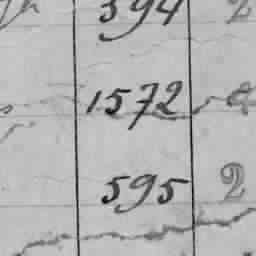 594 2
1572
595 2